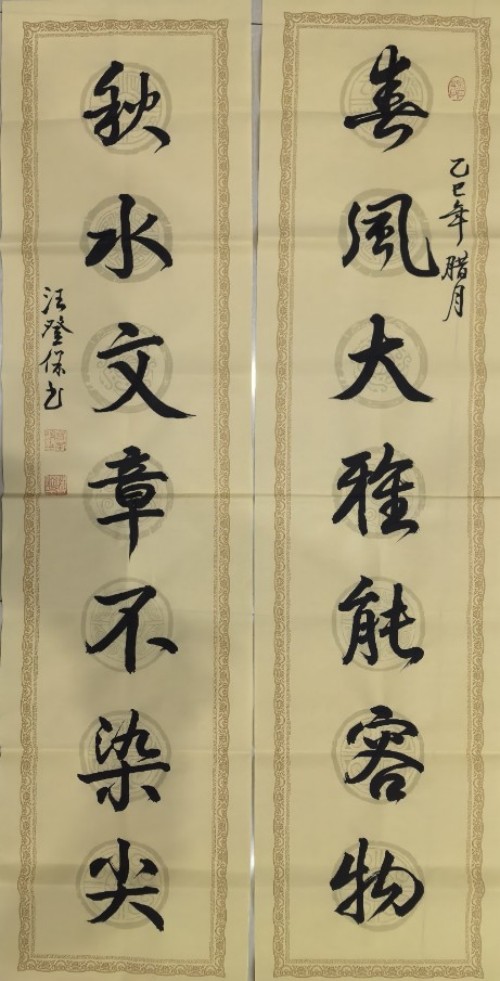 春風大雅能容物
乙巳年腊月
秋水文章不染尖
汪登保书